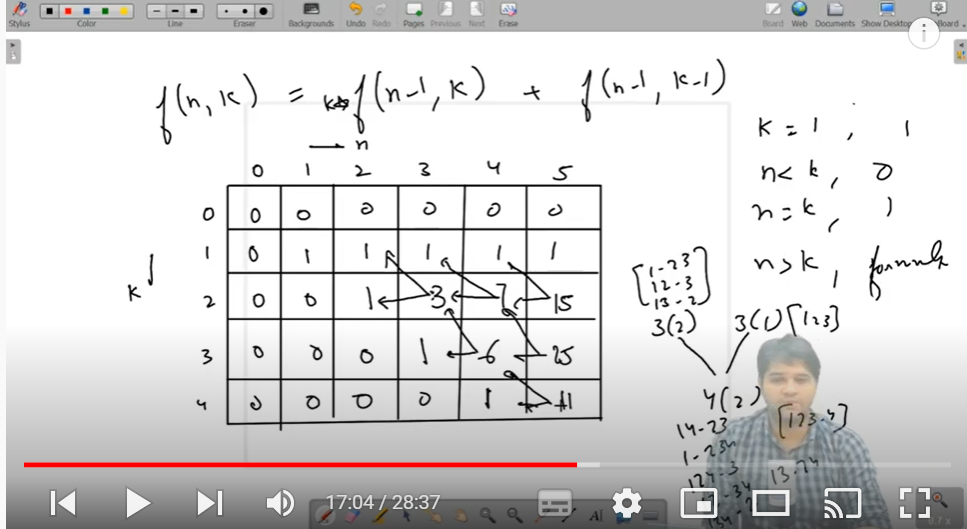 Stylus
Color
Line
Eraser
Backgrounds
Undo
Redo
Pages
Previous
Next
Erase
Board
Web
Documents
Show Desktop
Board
f(n, k) = f(n-1, k) + f(n-1, k-1)
→ n
0 1 2 3 4 5
0 0 0 0 0 0 0
1 0 1 1 1 1 1
k ↓
2 0 0 1 3 7 15
3 0 0 0 1 6 25
4 0 0 0 0 1
k = 1, 1
n < k, 0
n = k, 1
n > k, formula
[1-23
12-3
13-2]
3(2)
3(1) [123]
4(2)
14-23
[123-4]
1-234
124-3
13-24
17:04 / 28:37